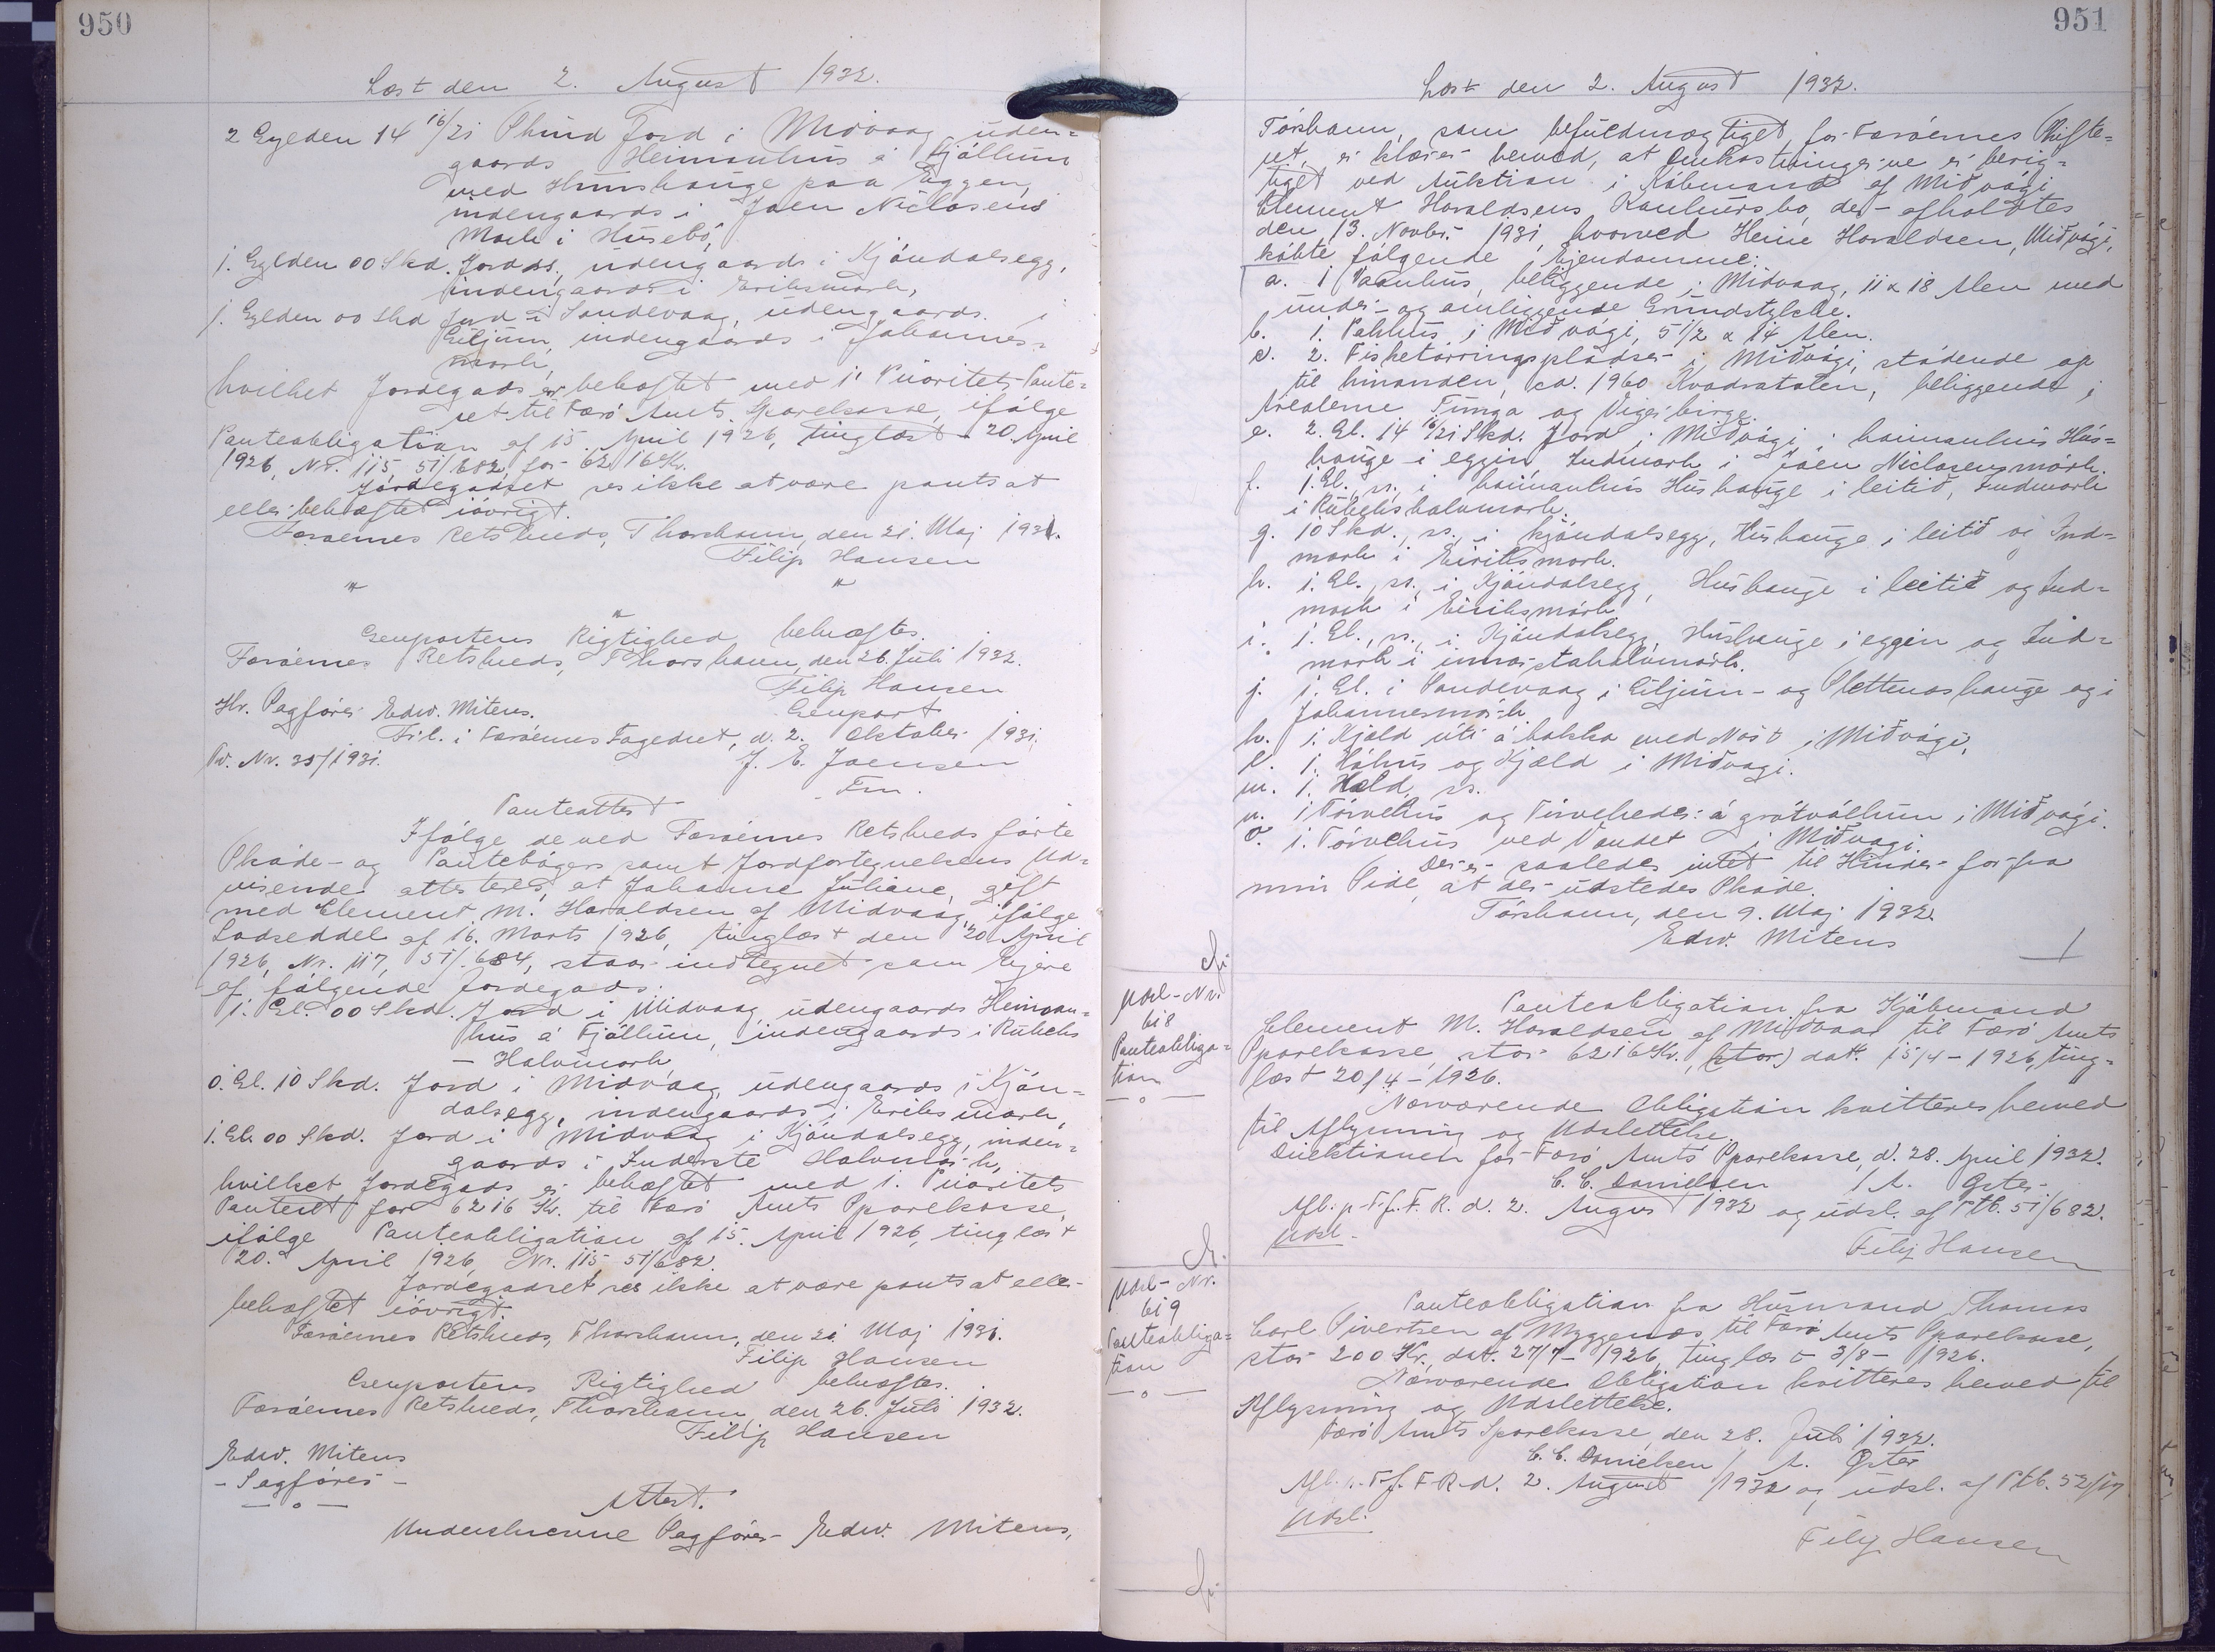 950
Læst den 2. August 1932.
2 Gylden 14 16/21 Skind Jord i Midvaag uden-
gaards Heimanhus á Fjøllum
med Húushauge paa Eggen,
indengaards i Joen Niclasens
Mark i Húsebø,
1. Gylden 00 Skd. Jord ss., udengaards i Kjóndalsegg,
indengaards i Eriksmark,
1. Gylden 00 Skd Jord i Sandevaag, udengaards i
Giljum, indengaards i Johannes-
mark,
hvilket Jordegods er behæftet med 1' Prioritets Pante-
ret til Færø Amts Sparekasse, ifølge
Panteobligation af 15. April 1926, tinglæst 20 April
1926, Nr. 115, 51/682, for 6216 Kr.
Jordegodset ses ikke at være pantsat
eller behæftet iøvrigt.
Færøernes Retskreds, Thorshavn, den 21. Maj 1931.
Filip Hansen
" "
"
Genpartens Rigtighed bekræftes.
Færøernes Retskreds, Thorshavn, den 26. Juli 1932.
Filip Hansen
Hr. Sagfører Edw. Mitens. Genpart
Fil. i Færøernes Fogedret, d. 2. Oktober 1931.
Pw. Nr. 35/1931. J. E. Joensen
Fm.
Panteattest
Ifølge de ved Færøernes Retskreds førte
Skøde- og Pantebøger samt Jordfortegnelsens Ud-
visende attesteres, at Johanne Juliane, gift
med Clement M. Haraldsen af Midvaag, ifølge
Lodseddel af 16. Marts 1926, tinglæst den 20 April
1926, Nr. 117, 51/684, staar indtegnet som Ejere
af følgende Jordegods:
1. Gl. 00 Skd. Jord i Midvaag, udengaards Heiman-
hús á Fjøllum, indengaards i Rúbeks
- Halvmark,
0. Gl. 10 Skd. Jord i Midvaag, udengaards i Kjón-
dalsegg, indengaards i Eriksmark,
1. Gl. 00 Skd. Jord i Midvaag i Kjóndalsegg, inden-
gaards i Inderste Halvmark,
hvilket Jordegods er behæftet med 1. Prioritets
Panteret for 6216 Kr. til Færø Amts Sparekasse,
ifølge Panteobligation af 15. April 1926, tinglæst
20. April 1926, Nr. 115, 51/682.
Jordegodset ses ikke at være pantsat eller
behæftet iøvrigt.
Færøernes Retskreds, Thorshavn, den 21 Maj 1931.
Filip Hansen
Genpartens Rigtighed bekræftes.
Færøernes Retskreds, Thorshavn, den 26. Juli 1932.
Filip Hansen
Edw. Mitens
- Sagfører -
— o —
Attest.
Underskrevne Sagfører Edw. Mitens,
951
Læst den 2. August 1932.
Tórshavn, som befuldmægtiget for Færøernes Skifte-
ret, erklærer herved, at Omkostningerne er berig-
tiget ved Auktion i Købmand af Miðvági
Clement Haraldsens Konkursbo, der afholdtes
den 13. Novbr. 1931, hvorved Heine Haraldsen, Miðvági,
købte følgende Ejendomme:
a. 1 Vaanhus, beliggende i Midvaag, 11 x 18 Alen med
under- og omliggende Grundstykke.
b. 1. Pakhús i Miðvági, 5 1/2 x 14 Alen.
d. 2. Fisketørringspladser i Miðvági, stødende op
til hinanden, ca. 1960 Kvadratalen, beliggende i
Arealerne Tunga og Vigerbirge.
e. 2. Gl. 14 16/21 Skd. Jord i Miðvági i heimanhús Hús-
hauge i eggin, Indmark i Joen Niclasensmørk.
f. 1. Gl., ss., i heimanhús Hushauge i leitið, Indmark
i Rúbeks halvmark.
g. 10 Skd., ss., i Kjóndalsegg, Húshauge i leitið og Ind-
mark i Eiriksmark.
h. 1. Gl., ss., i Kjóndalsegg, Hushauge i leitið og Ind-
mark i Eiriksmørk
i. 1. Gl., ss., i Kjóndalsegg, Húshauge i eggin og Ind-
mark i innarstuhalvmørk.
j. 1. Gl. i Sandevaag i Giljum- og Slettenoshauge og i
Johannesmørk
k. 1. Kjald úti á bakka med Nøst i Miðvági,
l. 1. Háhús og Kjæld i Miðvagi.
m. 1. Hæld, ss.
n. 1 Tørvehús og Tørveheder: á grótvøllum i Miðvági.
o. 1. Tørvehus ved Vandet i Miðvagi.
Der er saaledes intet til Hinder for fra
min Side, at der udstedes Skøde.
Tórshavn, den 9. Maj 1932.
Edw. Mitens
Udsl-Nr.
618
Panteobliga-
tion
— o —
Panteobligation fra Kjøbmand
Clement M. Haraldsen af Midvaag til Færø Amts
Sparekasse, stor 6216 Kr., (stor) dat. 15/4-1926, ting-
læst 20/4-1926.
Nærværende Obligation kvitteres herved
til Aflysning og Udslettelse.
Direktionen for Færø Amts Sparekasse, d. 28. April 1932.
C. C. Danielsen / A. Øster
Afl. p. F.f. F. R. d. 2. August 1932 og udsl. af Ptb. 51/682.
Udsl.
Filip Hansen
Udsl- Nr.
619
Panteobliga-
tion
— o —
Panteobligation fra Husmand Thomas
Carl Sivertsen af Myggenæs, til Færø Amts Sparekasse,
stor 200 Kr., dat. 27/7-1926, tinglæst 3/8-1926.
Nærværende Obligation kvitteres herved til
Aflysning og Udslettelse.
Færø Amts Sparekasse, den 28. Juli 1932.
C. C. Danielsen / A. Øster
Afl. p. F.f. F. R. d. 2. August 1932 og udsl. af Ptb. 52/
Udsl.
Filip Hansen